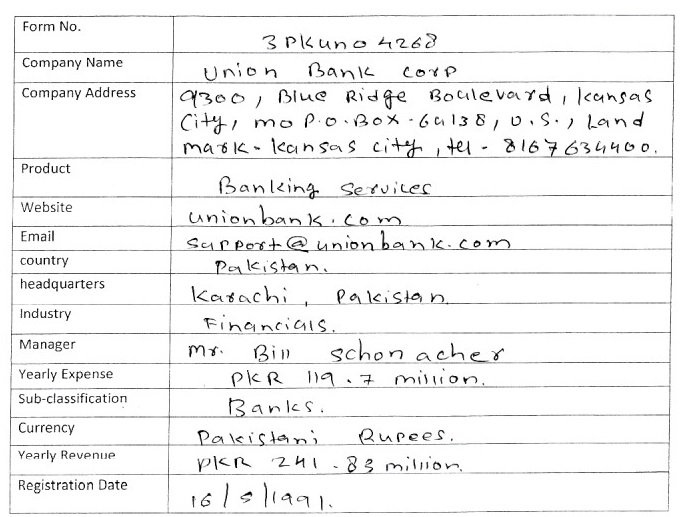 Form No.
3PKUno4268
Company Name
Union Bank corp
Company Address
9300, Blue Ridge Boulevard, kansas
City, mo P.O.Box-64138, U.S., Land
mark-kansas city, tel-8167634400.
Product
Banking services
Website
unionbank.com
Email
support@unionbank.com
country
Pakistan.
headquarters
Karachi, Pakistan
Industry
Financials.
Manager
Mr. Bill schonacher
Yearly Expense
PKR 119.7 million.
Sub-classification
Banks.
Currency
Pakistani Rupees.
Yearly Revenue
PKR 241.83 million.
Registration Date
16/5/1991.